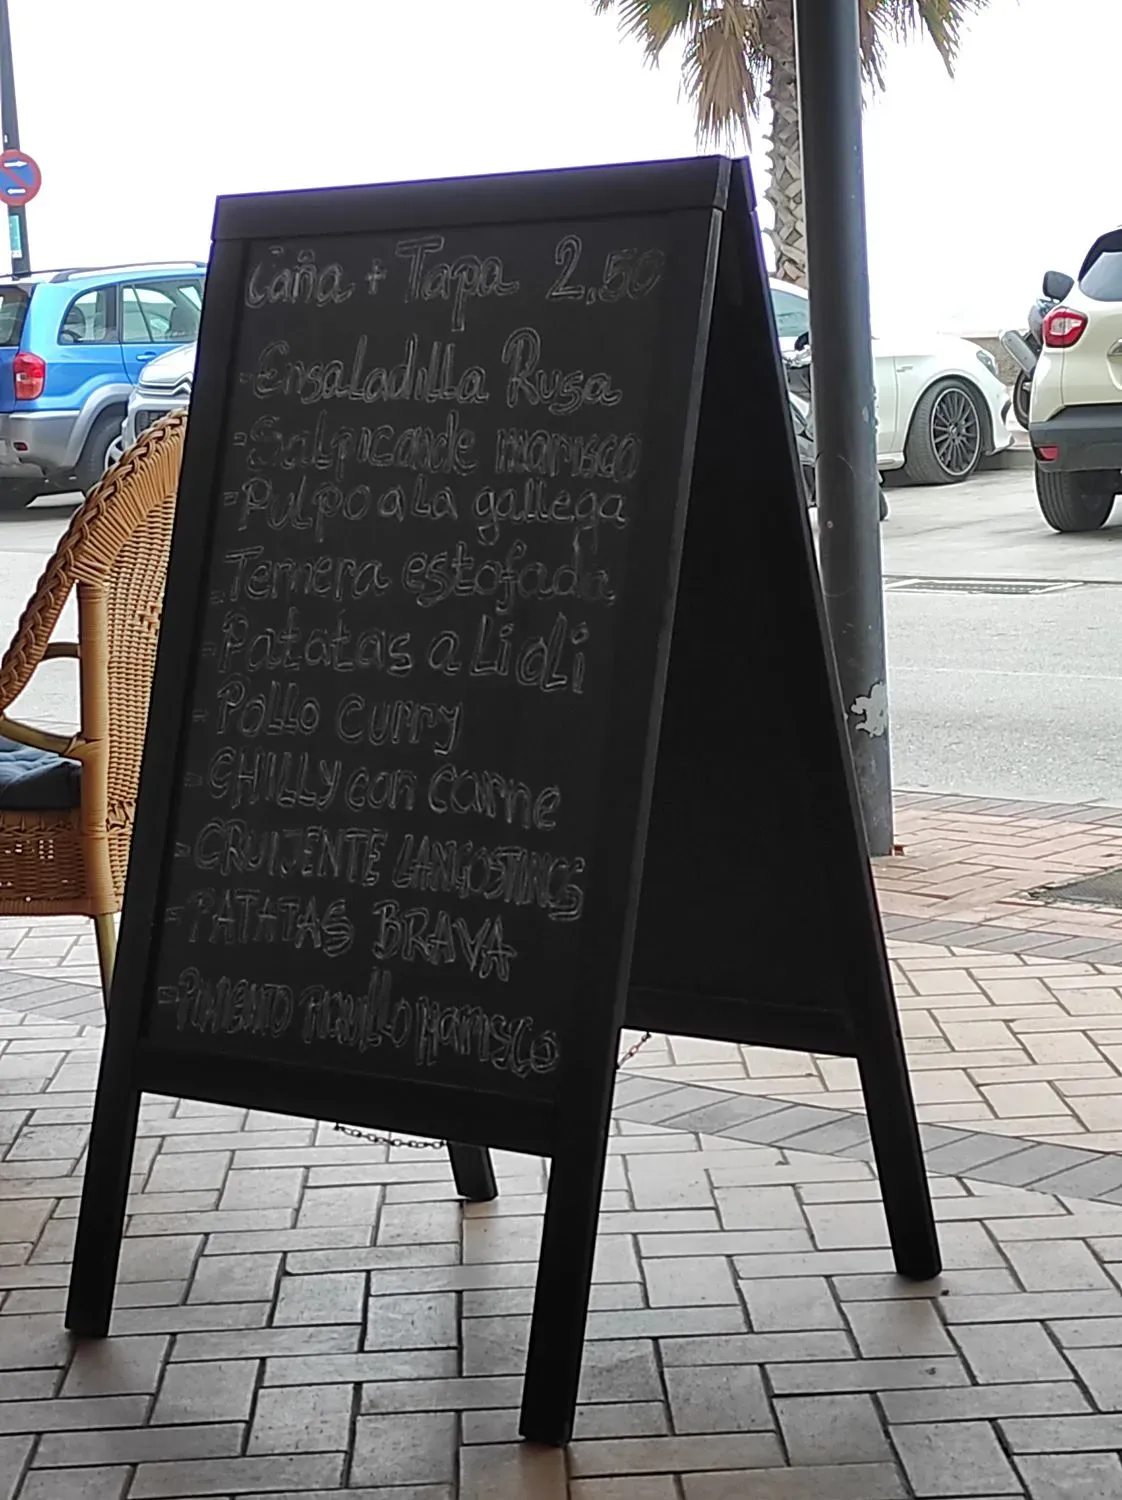 Caña + Tapa 2,50
- Ensaladilla Rusa
- Salpicande marisco
- Pulpo a la gallega
- Ternera estofada
- Patatas a Li oLi
- Pollo curry
- CHILLY con carne
- CRUIJENTE LANGOSTINOS
- PATATAS BRAVA
- PIMIENTO PIQUILLO Marisco